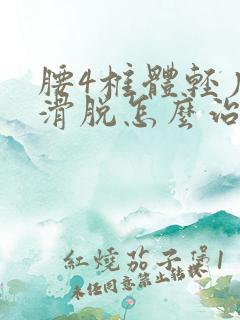 腰4椎體輕度
滑脫怎麼治
紅燒茄子煲1
未经同意禁止转载